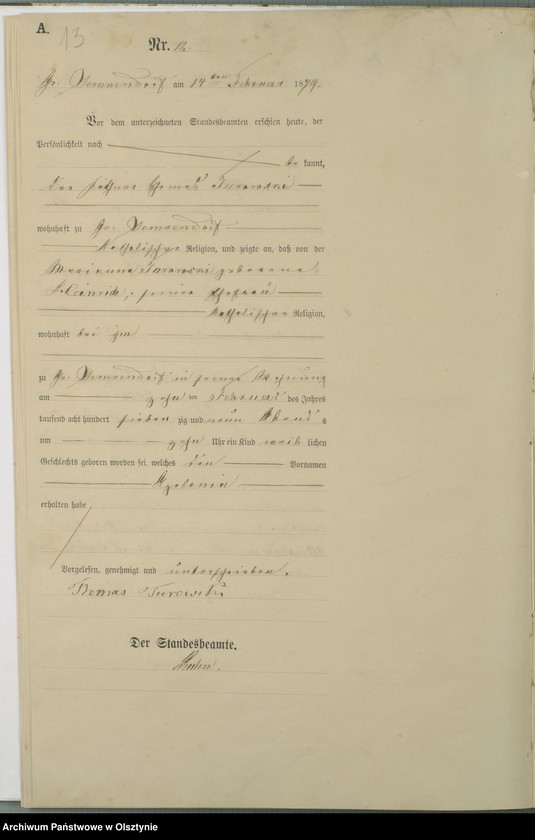 A.
13
Nr. 12.
Gr. am 14ten Februar 1879.
Vor dem unterzeichneten Standesbeamten erschien heute, der
Persönlichkeit nach
be kannt,
der Thomas Turowski
wohnhaft zu Gr.
katholischer Religion, und zeigte an, daß von der
Marianna Turowski geborene
seiner Ehefrau
katholischer Religion,
wohnhaft bei ihm
zu Gr. in seiner Wohnung
am zehnten Februar des Jahres
tausend acht hundert sieben zig und neun Abends
um zehn Uhr ein Kind weib lichen
Geschlechts geboren worden sei, welches den Vornamen
Apolonia
erhalten habe
Vorgelesen, genehmigt und unterschrieben.
Thomas Turowski
Der Standesbeamte.
Archiwum Państwowe w Olsztynie